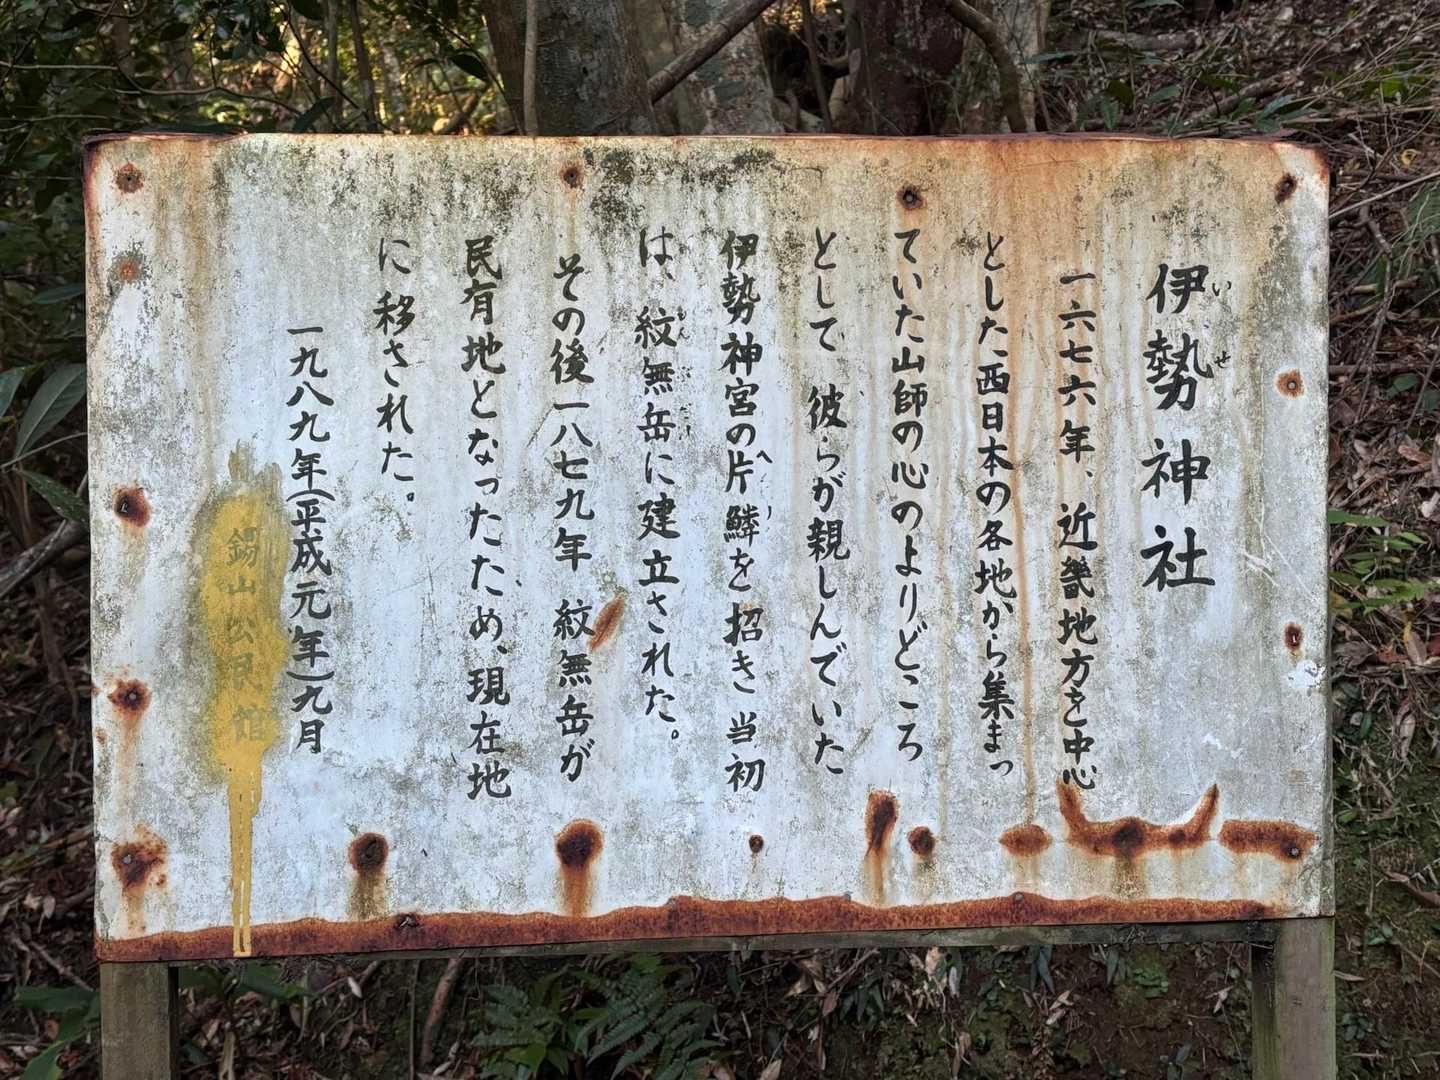 伊勢神社
いせ
一六七六年、近畿地方を中心
とした西日本の各地から集まっ
ていた山師の心のよりどころ
として 彼らが親しんでいた
伊勢神宮の片鱗を招き 当初
へんりん
は、紋無岳に建立された。
その後一八七九年 紋無岳が
民有地となったため、現在地
に移された。
一九八九年(平成元年)九月
錫山公民館